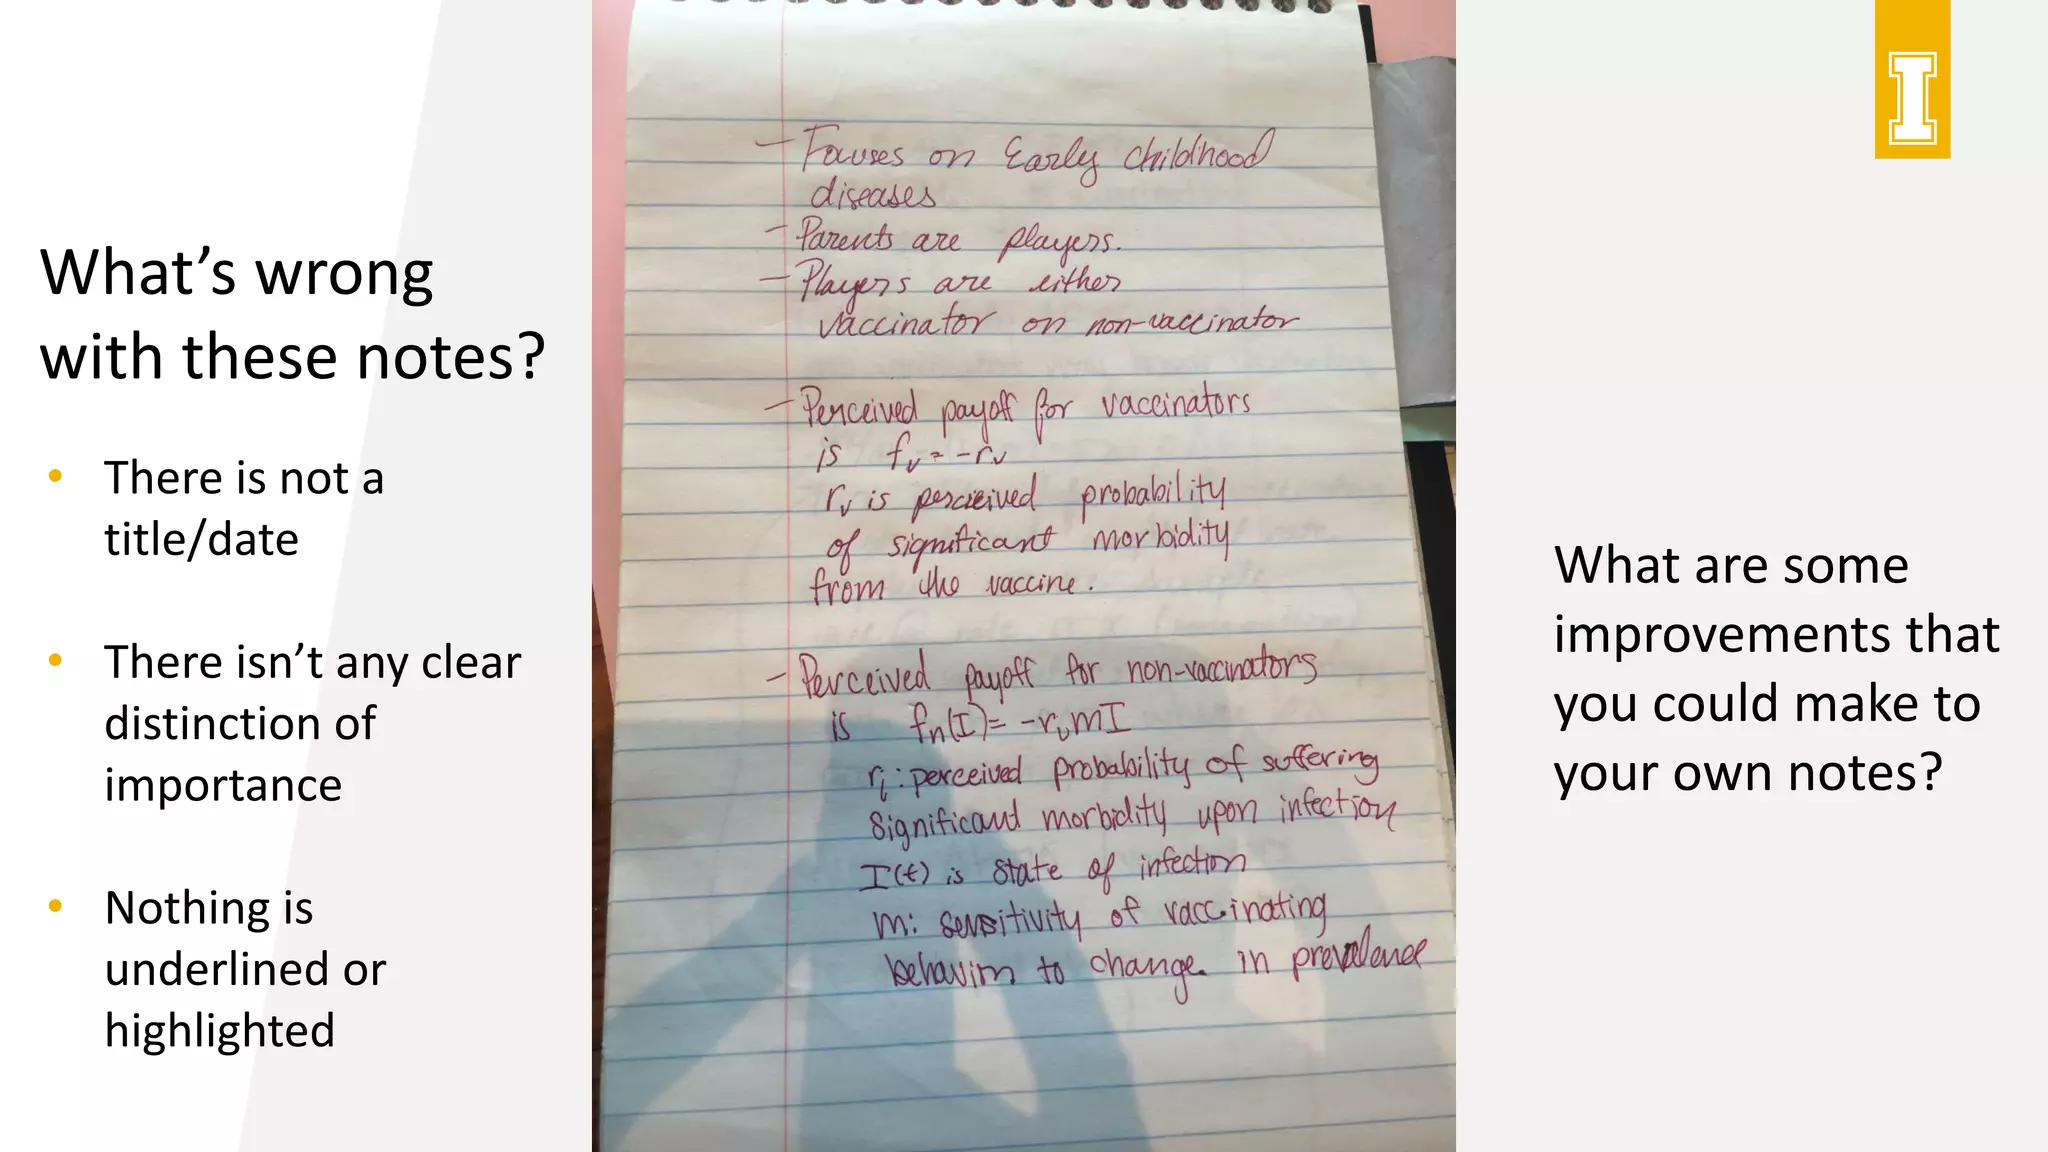 What's wrong
with these notes?
• There is not a
title/date
• There isn't any clear
distinction of
importance
• Nothing is
underlined or
highlighted
- Focuses on Early childhood
diseases
- Parents are players.
- Players are either
vaccinator or non-vaccinator
- Perceived payoff for vaccinators
is fv = -rv
rv is perceived probability
of significant morbidity
from the vaccine.
- Perceived payoff for non-vaccinators
is fn(I) = -rimI
ri: perceived probability of suffering
significant morbidity upon infection
I(t) is state of infection
m: sensitivity of vaccinating
behavior to change in prevalence
I
What are some
improvements that
you could make to
your own notes?